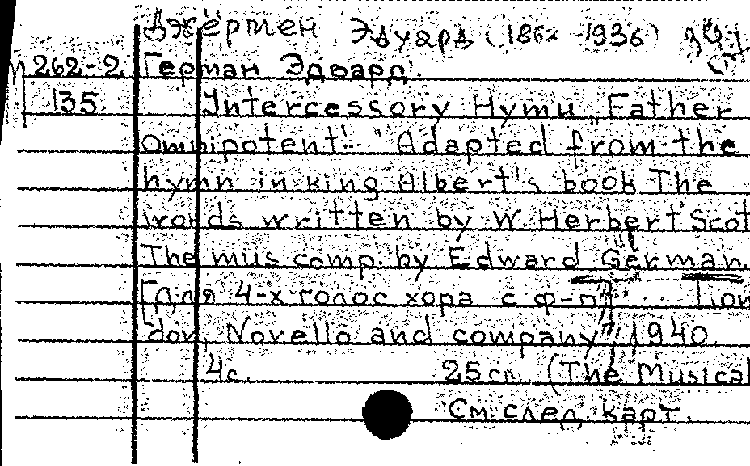 Джермен Эдуард (1862-1936)
М 262-2 Герман Эдвард.
135 Intercessory Hymn „Father
Omnipotent". Adapted from the
hymn in king Albert's book The
words written by W. Herbert Scot
The mus comp. by Edward German.
[Для 4-х голос хора с ф-п]... Lon
don, Novello and company, 1940.
4с. 25см (The Musical
См. след. карт.